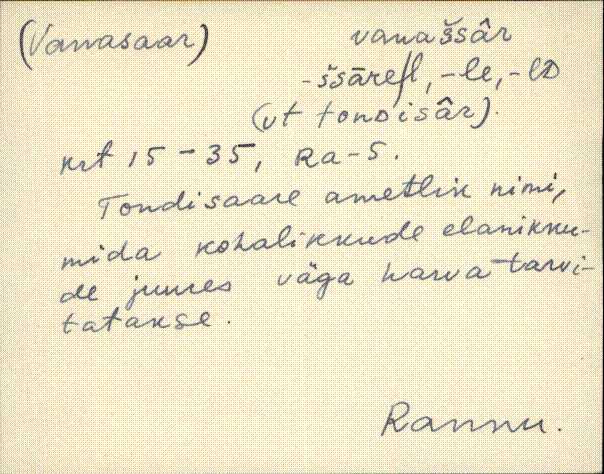 (Vanasaar) vanaššâr
-ššārel, -le, -lD
(vt tonDisâr).
krt 15-35, Ra-5.
Tondisaare ametlik nimi,
mida kohalikkude elanikku-
de juures väga harva tarvi-
tatakse.
Rannu.